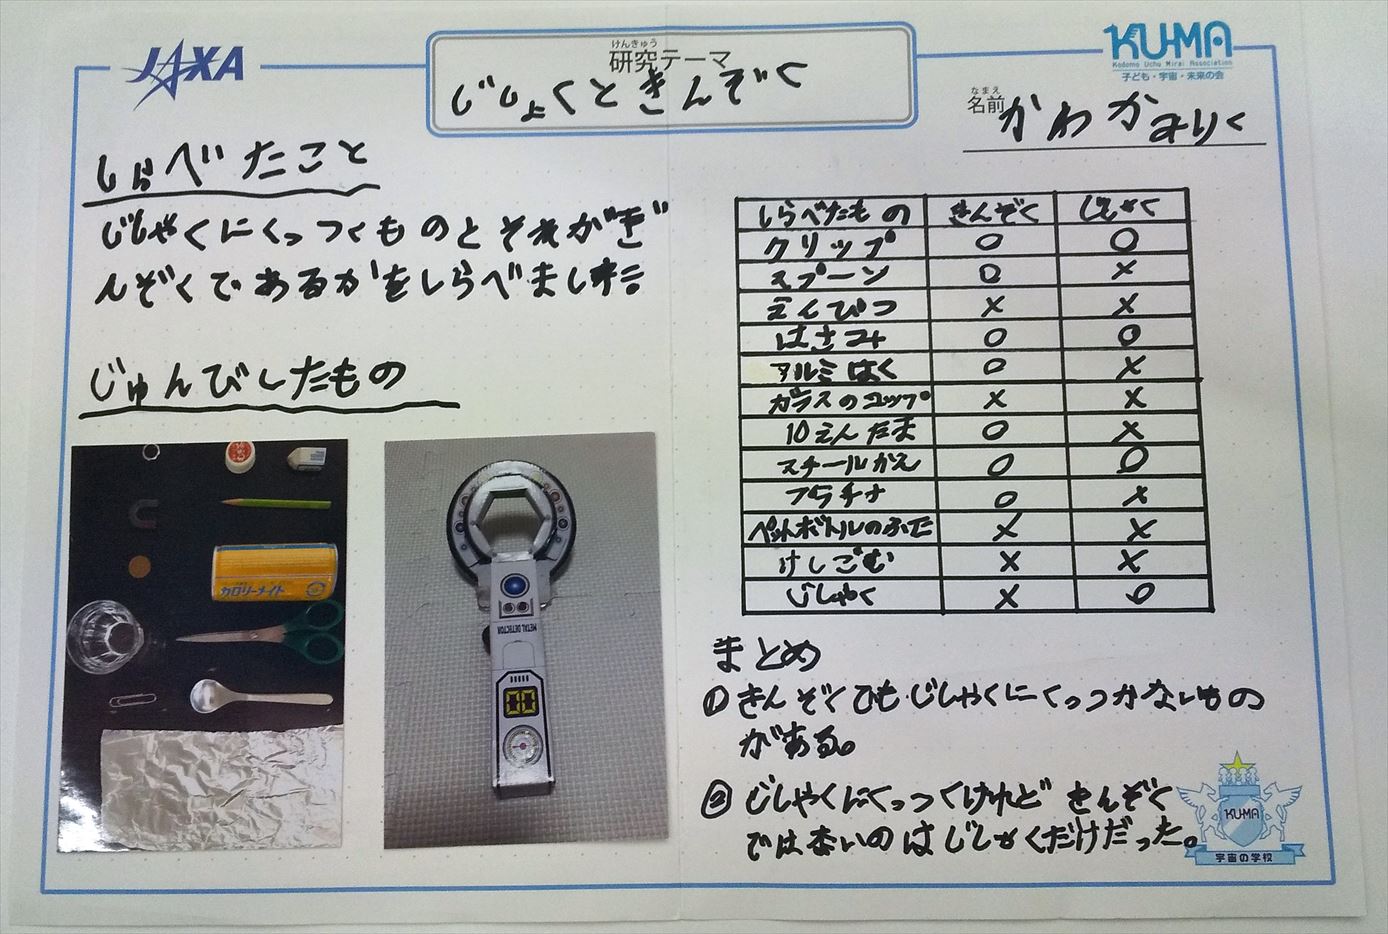 JAXA
けんきゅう
研究テーマ
じしょくときんぞく
KU-MA
Kodomo Uchu Mirai Association
子ども・宇宙・未来の会
なまえ
名前 かわかみりく
しらべたこと
じしゃくにくっつくものとそれがき
んぞくであるかをしらべました
じゅんびしたもの
カロリーメイト
METAL DETECTOR
00
しらべたもの きんぞく じしゃく
クリップ ○ ○
スプーン ○ ×
えんぴつ × ×
はさみ ○ ○
アルミはく ○ ×
ガラスのコップ × ×
10えんだま ○ ×
スチールかん ○ ○
プラチナ ○ ×
ペットボトルのふた × ×
けしごむ × ×
じしゃく × ○
まとめ
① きんぞくでもじしゃくにくっつかないもの
がある。
② じしゃくにくっつくけれどきんぞく
ではないのはじしゃくだけだった。
KU-MA
宇宙の学校